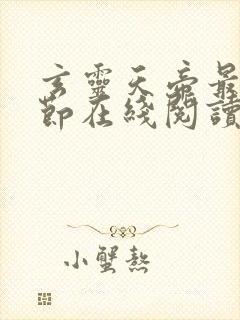 玄靈天帝最
節在綫閱讀
小蟹熬